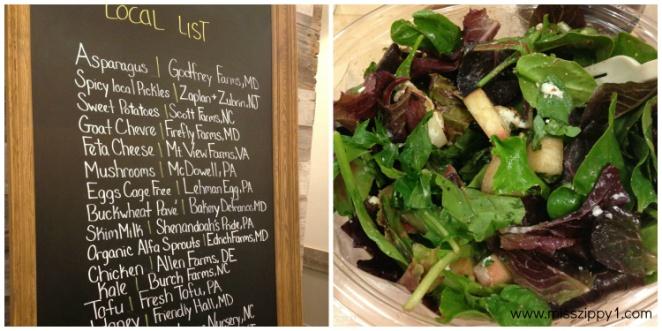 LOCAL LIST
Asparagus | Godfrey Farms, MD
Spicy local Pickles | Zaplan + Zubrin, NJ
Sweet Potatoes | Scott Farms, NC
Goat Chevre | Firefly Farms, MD
Feta Cheese | Mt View Farms, VA
Mushrooms | McDowell, PA
Eggs Cage Free | Lehman Egg, PA
Buckwheat Pavé | Bakery Defrance, MD
Skim Milk | Shenandoah's Pride, PA
Organic Alfa Sprouts | Ednch Farms, MD
Chicken | Allen Farms, DE
Kale | Burch Farms, NC
Tofu | Fresh Tofu, PA
Honey | Friendly Hall, MD
Nursery, NC
www.misszippy1.com